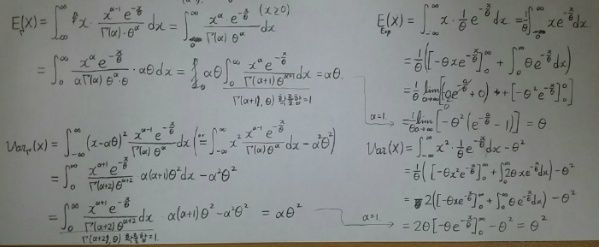 E_Γ(X) = ∫_{-∞}^{∞} x · \frac{x^{α-1} e^{-\frac{x}{θ}}}{Γ(α)·θ^α} dx = ∫_0^∞ \frac{x^α e^{-\frac{x}{θ}}}{Γ(α) θ^α} dx (x≥0)
= ∫_0^∞ \frac{x^α e^{-\frac{x}{θ}}}{αΓ(α) θ^α·θ} · αθ dx = αθ ∫_0^∞ \frac{x^α e^{-\frac{x}{θ}}}{Γ(α+1) θ^{α+1}} dx = αθ
Γ(α+1, θ) 확률합=1
Var_Γ(X) = ∫_{-∞}^{∞} (x-αθ)² \frac{x^{α-1} e^{-\frac{x}{θ}}}{Γ(α) θ^α} dx (or = ∫_{-∞}^{∞} x² \frac{x^{α-1} e^{-\frac{x}{θ}}}{Γ(α) θ^α} dx - α²θ²)
= ∫_0^∞ \frac{x^{α+1} e^{-\frac{x}{θ}}}{Γ(α+2) θ^{α+2}} α(α+1)θ² dx - α²θ²
= ∫_0^∞ \frac{x^{α+1} e^{-\frac{x}{θ}}}{Γ(α+2) θ^{α+2}} dx · α(α+1)θ² - α²θ² = αθ²
Γ(α+2, θ) 확률합=1
E_{Exp}(X) = ∫_{-∞}^{∞} x · \frac{1}{θ} e^{-\frac{x}{θ}} dx = \frac{1}{θ} ∫_{-∞}^{∞} x e^{-\frac{x}{θ}} dx
= \frac{1}{θ} ([-θx e^{-\frac{x}{θ}}]_0^∞ + ∫_0^∞ θ e^{-\frac{x}{θ}} dx)
α=1 → = \frac{1}{θ} lim_{a→∞} [-θ² (e^{-\frac{a}{θ}} - 1)] = θ
Var(X) = ∫_{-∞}^{∞} x² · \frac{1}{θ} e^{-\frac{x}{θ}} dx - θ²
= \frac{1}{θ} ([-θx² e^{-\frac{x}{θ}}]_0^∞ + ∫_0^∞ 2θx e^{-\frac{x}{θ}} dx) - θ²
= 2([-θx e^{-\frac{x}{θ}}]_0^∞ + ∫_0^∞ θ e^{-\frac{x}{θ}} dx) - θ²
α=1 → = 2θ [-θ e^{-\frac{x}{θ}}]_0^∞ - θ² = θ²